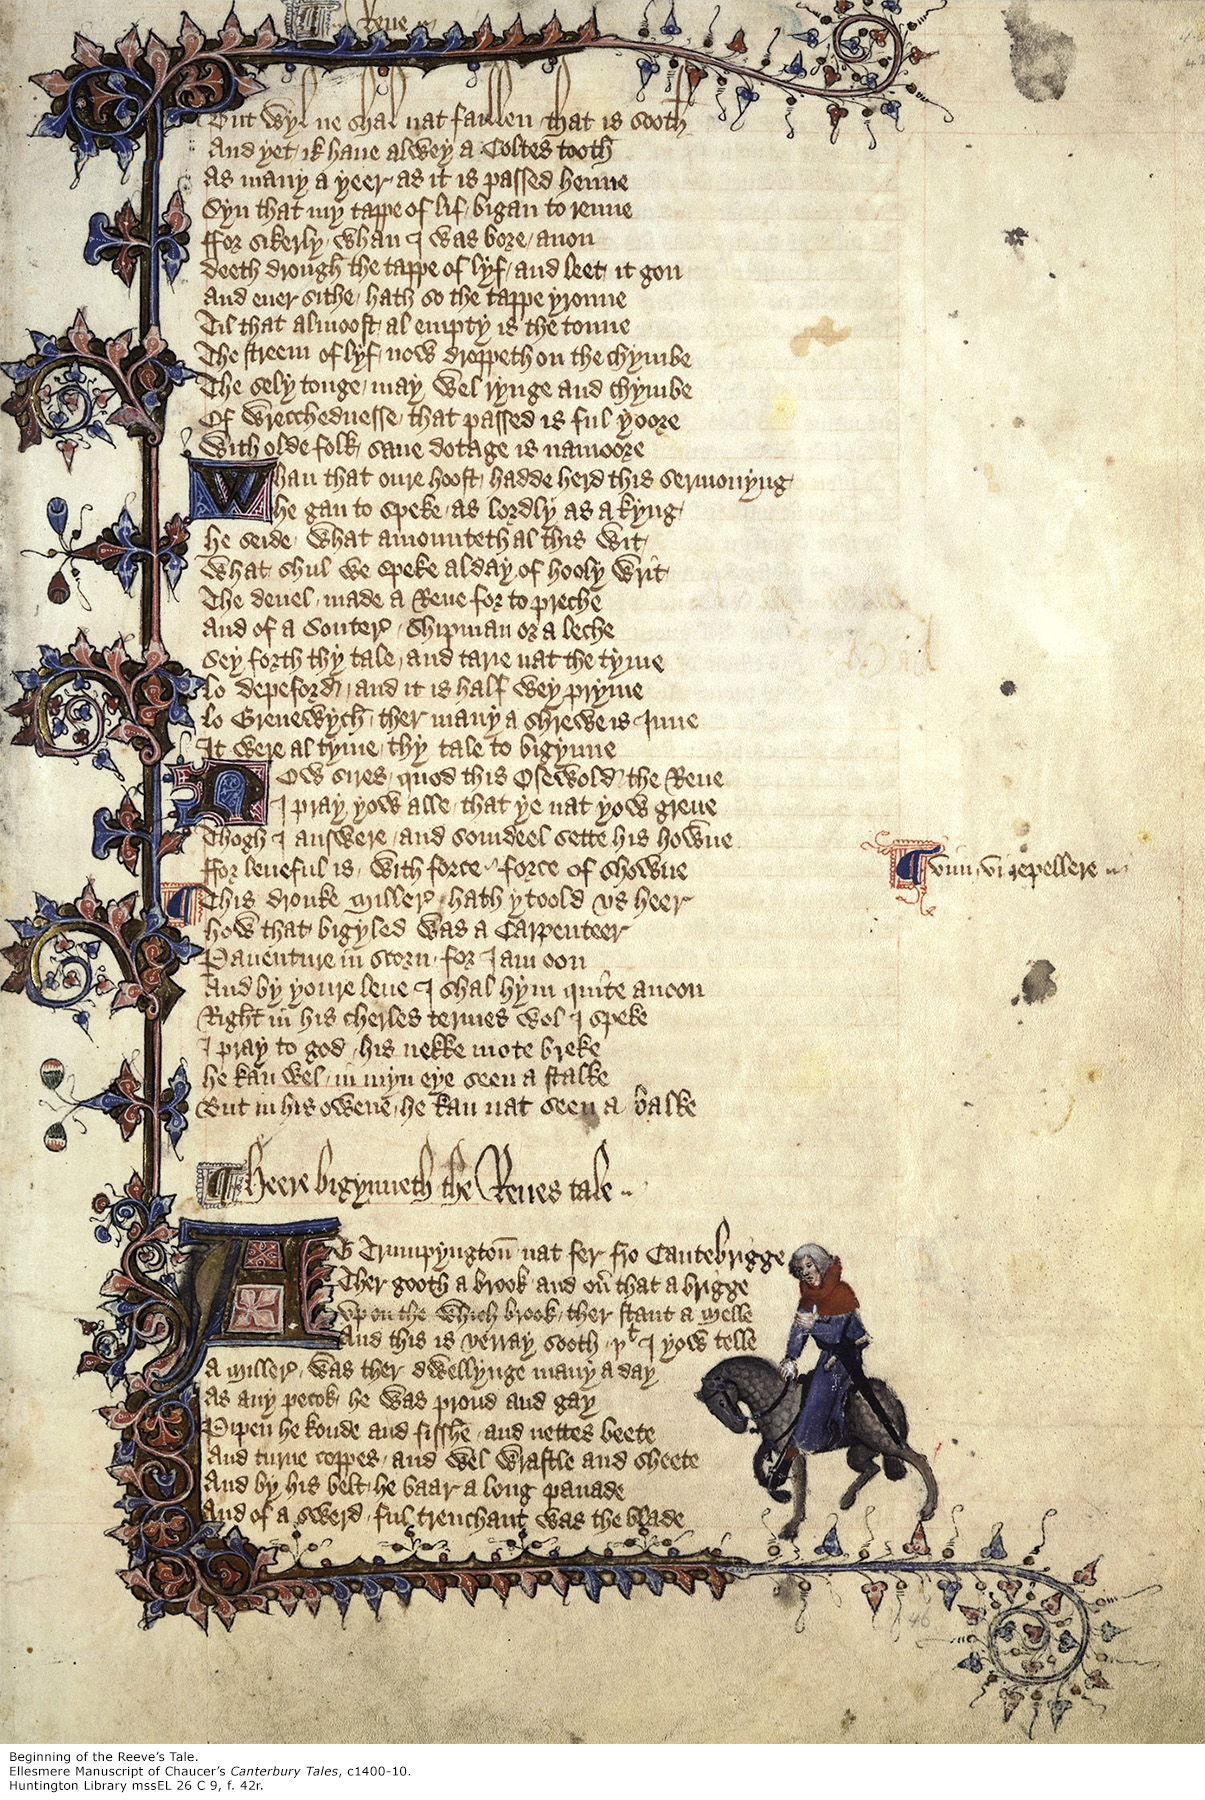 ¶ Reue
But wyl ne shal nat faillen that is sooth
And yet ik haue alwey a Coltes tooth
As many a yeer as it is passed henne
Syn that my tappe of lif bigan to renne
ffor sikerly whan I was bore anon
deeth drough the tappe of lyf and leet it gon
And euer sithe hath so the tappe yronne
Til that almoost al empty is the tonne
The streem of lyf now droppeth on the chymbe
The sely tonge may wel rynge and chymbe
Of wrecchednesse that passed is ful yoore
With olde folk saue dotage is namoore
Whan that oure hoost hadde herd this sermonyng
he gan to speke as lordly as a kyng
he seide what amounteth al this wit
What shul we speke alday of hooly writ
The deuel made a Reue for to preche
And of a Souter Shipman or a leche
Sey forth thy tale and tarie nat the tyme
lo depeford and it is half wey pryme
lo Grenewych ther many a shrewe is Inne
It were al tyme thy tale to bigynne
Now sires quod this Osewold the Reue
I pray yow alle that ye nat yow greue
Thogh I answere and somdeel sette his howue
ffor leueful is with force force of showue
¶ vim vi repellere
¶ This dronke Miller hath ytoold vs heer
how that bigyled was a Carpenteer
Pauenture in scorn for I am oon
And by youre leue I shal hym quite anoon
Right in his cherles termes wol I speke
I pray to god his nekke mote breke
he kan wel in myn eye seen a stalke
But in his owene he kan nat seen a balke
¶ Heere bigynneth the Reues tale
At Trumpyngtoun nat fer fro Cantebrigge
Ther gooth a brook and ouer that a brigge
vp on the which brook ther stant a Melle
And this is verray sooth þt I yow telle
A Miller was ther dwellynge many a day
As any pecok he was proud and gay
Pipen he koude and fisshe and nettes beete
And turne coppes and wel wrastle and sheete
And by his belt he baar a long panade
And of a swerd ful trenchant was the blade
Beginning of the Reeve’s Tale.
Ellesmere Manuscript of Chaucer’s Canterbury Tales, c1400-10.
Huntington Library mssEL 26 C 9, f. 42r.